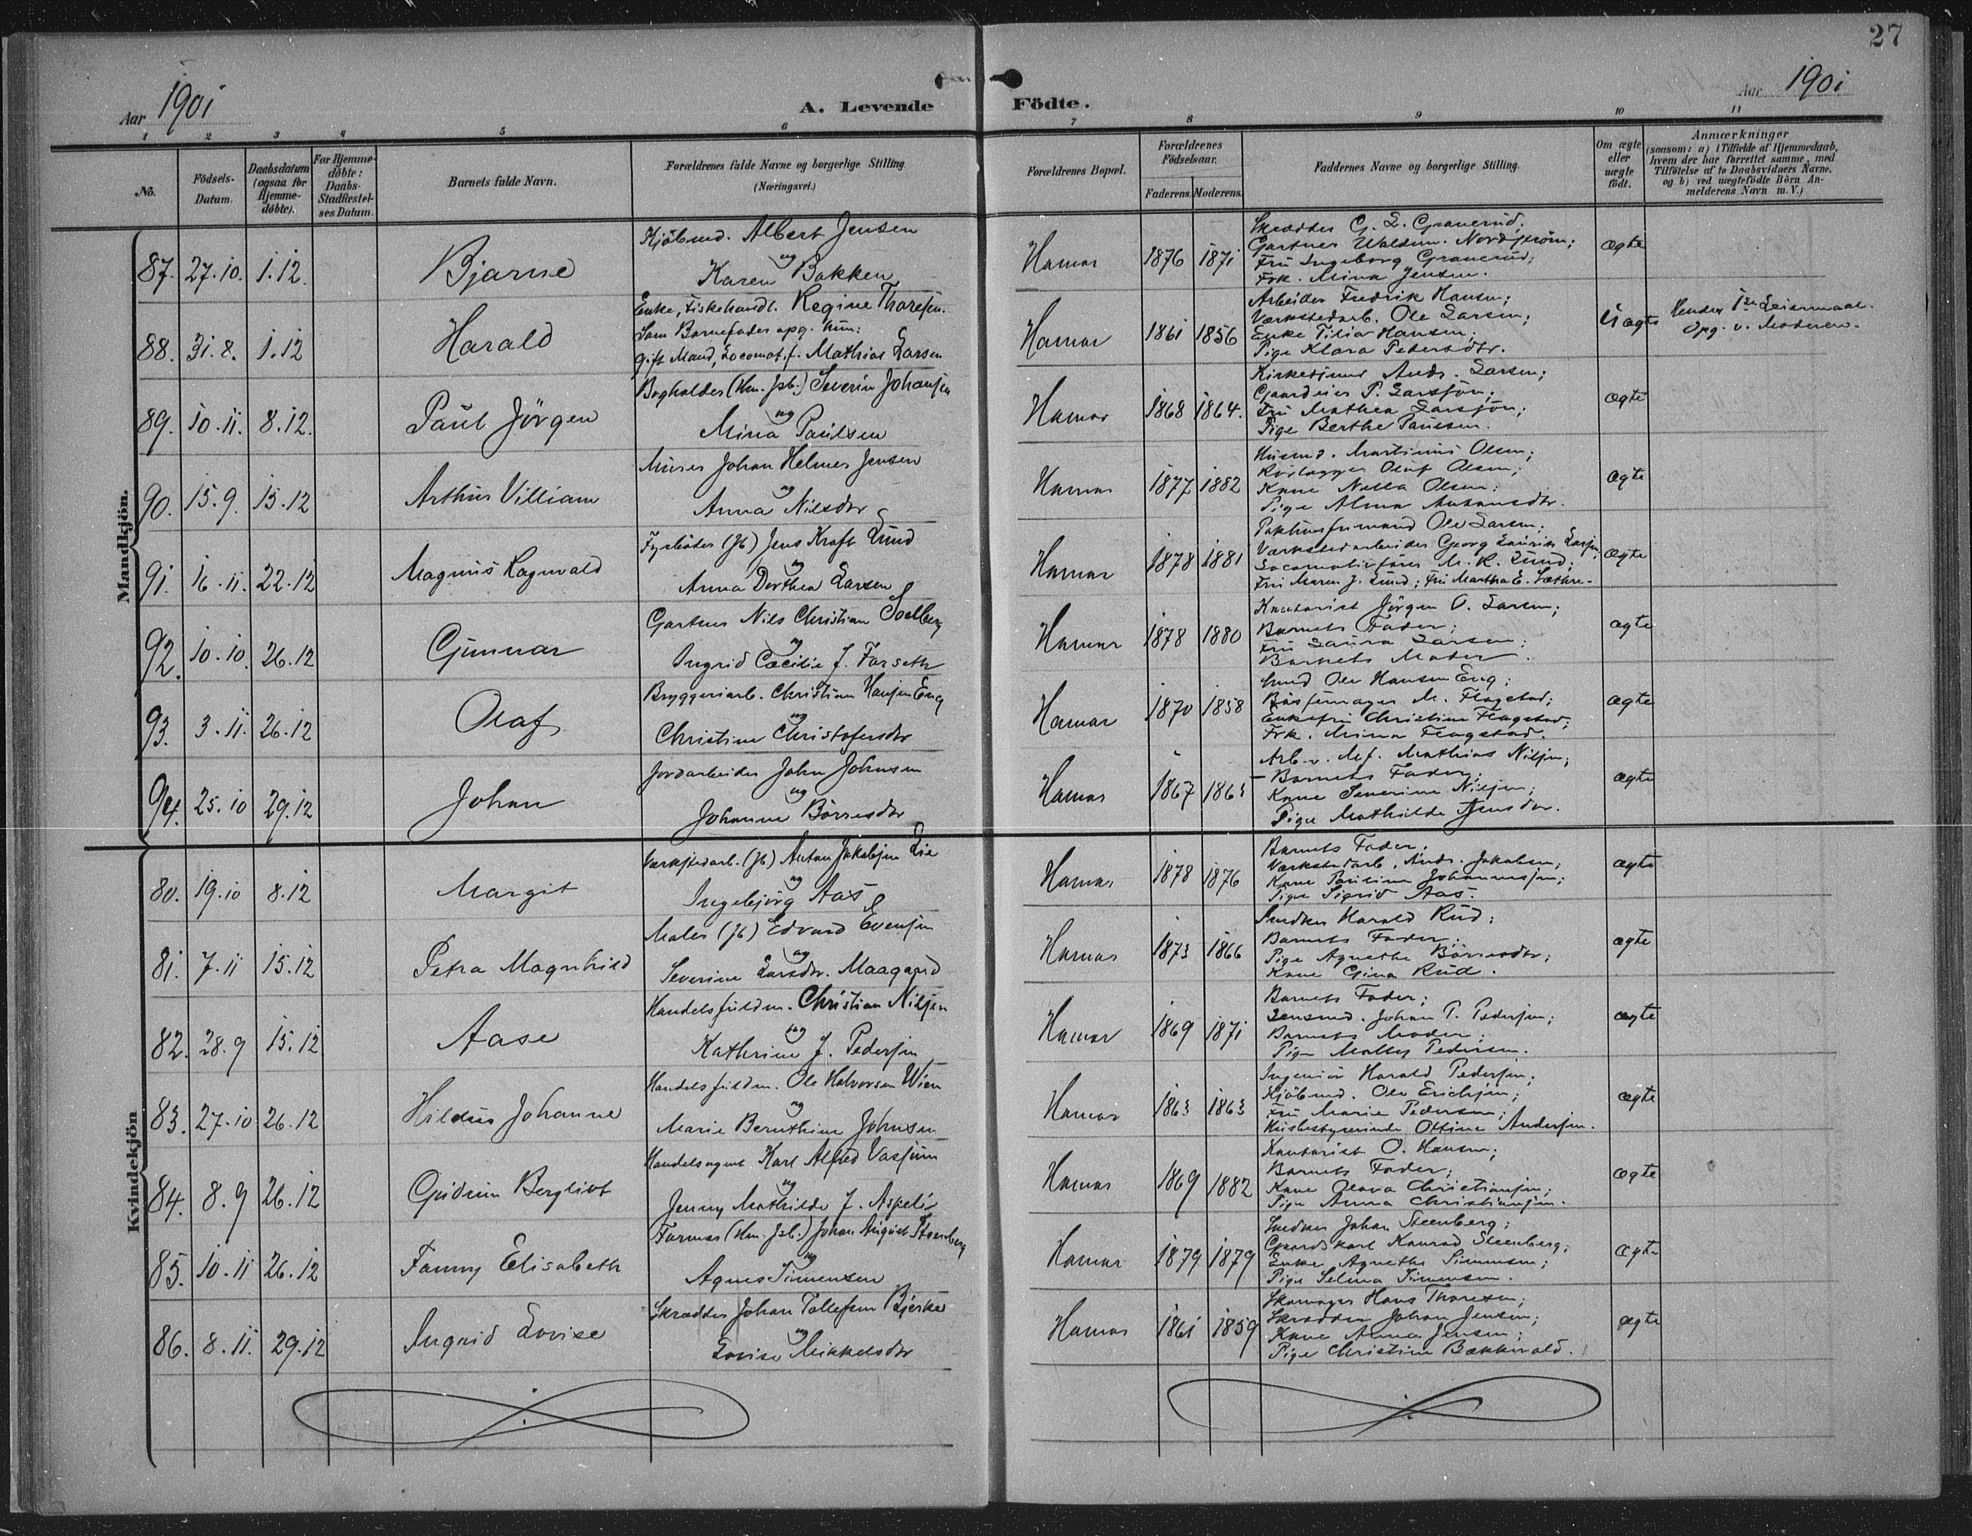 27
Aar 1901
A. Levende Födte.
Aar 1901
1 2 3 4 5 6 7 8 9 10 11
No.
Födsels-
Datum.
Daabsdatum
(ogsaa for
Hjemme-
döbte).
For Hjemme-
döbte:
Daabs-
Stadfæstel-
ses Datum.
Barnets fulde Navn.
Forældrenes fulde Navne og borgerlige Stilling
(Næringsvei.)
Forældrenes Bopæl.
Forældrenes
Födselsaar.
Faderens. Moderens.
Faddernes Navne og borgerlige Stilling.
Om ægte
eller
uægte
födt.
Anmærkninger
(saasom: a) i Tilfælde af Hjemmedaab,
hvem der har forrettet samme, med
Tilföielse af to Daabsvidners Navne,
og b) ved uægtefödte Börn An-
melderens Navn m. V.)
Mandkjön.
87. 27.10. 1.12. Bjarne
Kjöbmd. Albert Jensen
og
Karen Bakken
Hamar 1876 1871
Skrædder G. L. Granerud;
Gartner Waldm. Nordström;
Fru Ingeborg Granerud;
Frk. Mina Jensen.
ægte
88. 31.8. 1.12 Harald
Enke, Fiskehandl. Regine Thoresen.
Som Barnefader opg. hun:
gift Mand, Locomot.f. Mathias Larsen
Hamar 1861 1856
Arbeider Fredrik Hansen;
Værkstedarb. Ole Larsen;
Enke Tilia Hansen;
Pige Klara Pedersdtr.
Uægte
Hendes 1ste Leiermaal.
Opg. v. Moderen.
89. 10.11. 8.12. Paul Jörgen
Bogholder (Hm. Jsb.) Severin Johansen
og
Mina Paulsen
Hamar 1868 1864.
Kirketjener Andr. Larsen;
Gaardeier P. Larsson;
Fru Mathea Larsson;
Pige Berthe Paulsen.
ægte
90. 15.9. 15.12 Arthur Villiam
Murer Johan Helmer Jensen
og
Anna Nilsdtr
Hamar 1877 1882
Husmd. Martinus Olsen;
Rörlægger Oluf Olsen;
Kone Nella Olsen;
Pige Alma Antonsdtr.
ægte
91. 16.11. 22.12 Magnus Ragnvald
Fyrböder (Jb) Jens Kraft Lund
og
Anna Dorthea Larsen
Hamar 1878 1881
Pakhusformand Ole Larsen;
Værkstedarbeider Georg Laurits Larsen
Locomotivförer M. R. Lund;
Fru Maren J. Lund; Fru Martha E. Sæthre.
ægte
92. 10.10. 26.12 Gunnar
Gartner Nils Christian Solberg
og
Ingrid Cæcilie J. Forseth
Hamar 1878 1880
Kontorist Jörgen O. Larsen;
Barnets Fader;
Fru Laura Larsen;
Barnets Moder.
ægte
93. 3.11. 26.12 Olaf
Bryggeriarb. Christian Hansen Eng
og
Christine Christofersdtr
Hamar 1870 1858
Smed Ole Hansen Eng;
Bössemager M. Flagstad;
Enkefru Christine Flagstad;
Frk. Minna Flagstad.
ægte
94. 25.10 29.12 Johan
Jordarbeider John Johnsen
og
Johanne Börresdtr
Hamar 1867 1865
Arb. v. Mathias Nilsen;
Barnets Fader;
Kone Severine Nilsen;
Pige Mathilde Jensdtr.
ægte
Kvindekjön
80. 19.10 8.12 Margit
Værkstedarb. (Jb) Anton Jakobsen Lie
og
Ingebjörg Aas
Hamar 1878 1876
Barnets Fader;
Værkstedarb. Andr. Jakobsen;
Kone Pauline Johannesen;
Pige Sigrid Aas.
ægte
81. 7.11 15.12 Petra Magnhild
Maler (Jb) Edvard Evensen
og
Severine Larsdtr. Maagaard
Hamar 1873 1866
Snedker Harald Rud;
Barnets Fader;
Pige Agnethe Börresdtr;
Kone Gina Rud.
ægte
82. 28.9 15.12 Aase
Handelsfuldm. Christian Nilsen
og
Kathrine J. Pedersen
Hamar 1869 1871
Barnets Fader;
Lensmd. Johan P. Pedersen;
Barnets Moder;
Pige Molly Pedersen.
ægte
83. 27.10 26.12 Hildur Johanne
Handelsfuldm. Ole Halvorsen Wien
og
Marie Bernthine Johnsen
Hamar 1863 1863
Ingeniör Harald Pedersen;
Kjöbmd. Ole Erichsen;
Fru Marie Pedersen;
Husbestyrerinde Ottine Andersen.
ægte
84. 8.9 26.12 Gudrun Bergliot
Handelsagent Karl Alfred Vasjuen
og
Jenny Mathilde J. Aspeli
Hamar 1869 1882
Kontorist O. Hansen;
Barnets Fader;
Kone Olava Christiansen;
Pige Anna Christiansen.
ægte
85. 10.11 26.12 Fanny Elisabeth
Formar (Hm. Jsb.) Johan August Steenberg
og
Agnes Simensen
Hamar 1879 1879
Snedker Johan Steenberg;
Gaardskarl Konrad Steenberg;
Enke Agnethe Simensen;
Pige Selma Simensen.
ægte
86. 8.11. 29.12 Ingrid Lovise
Skrædder Johan Tollefsen Bjerke
og
Lovise Mikkelsdtr
Hamar 1861 1859
Skomager Hans Thoresen;
Skrædder Johan Jensen;
Kone Anna Jensen;
Pige Christine Bækkevold.
ægte